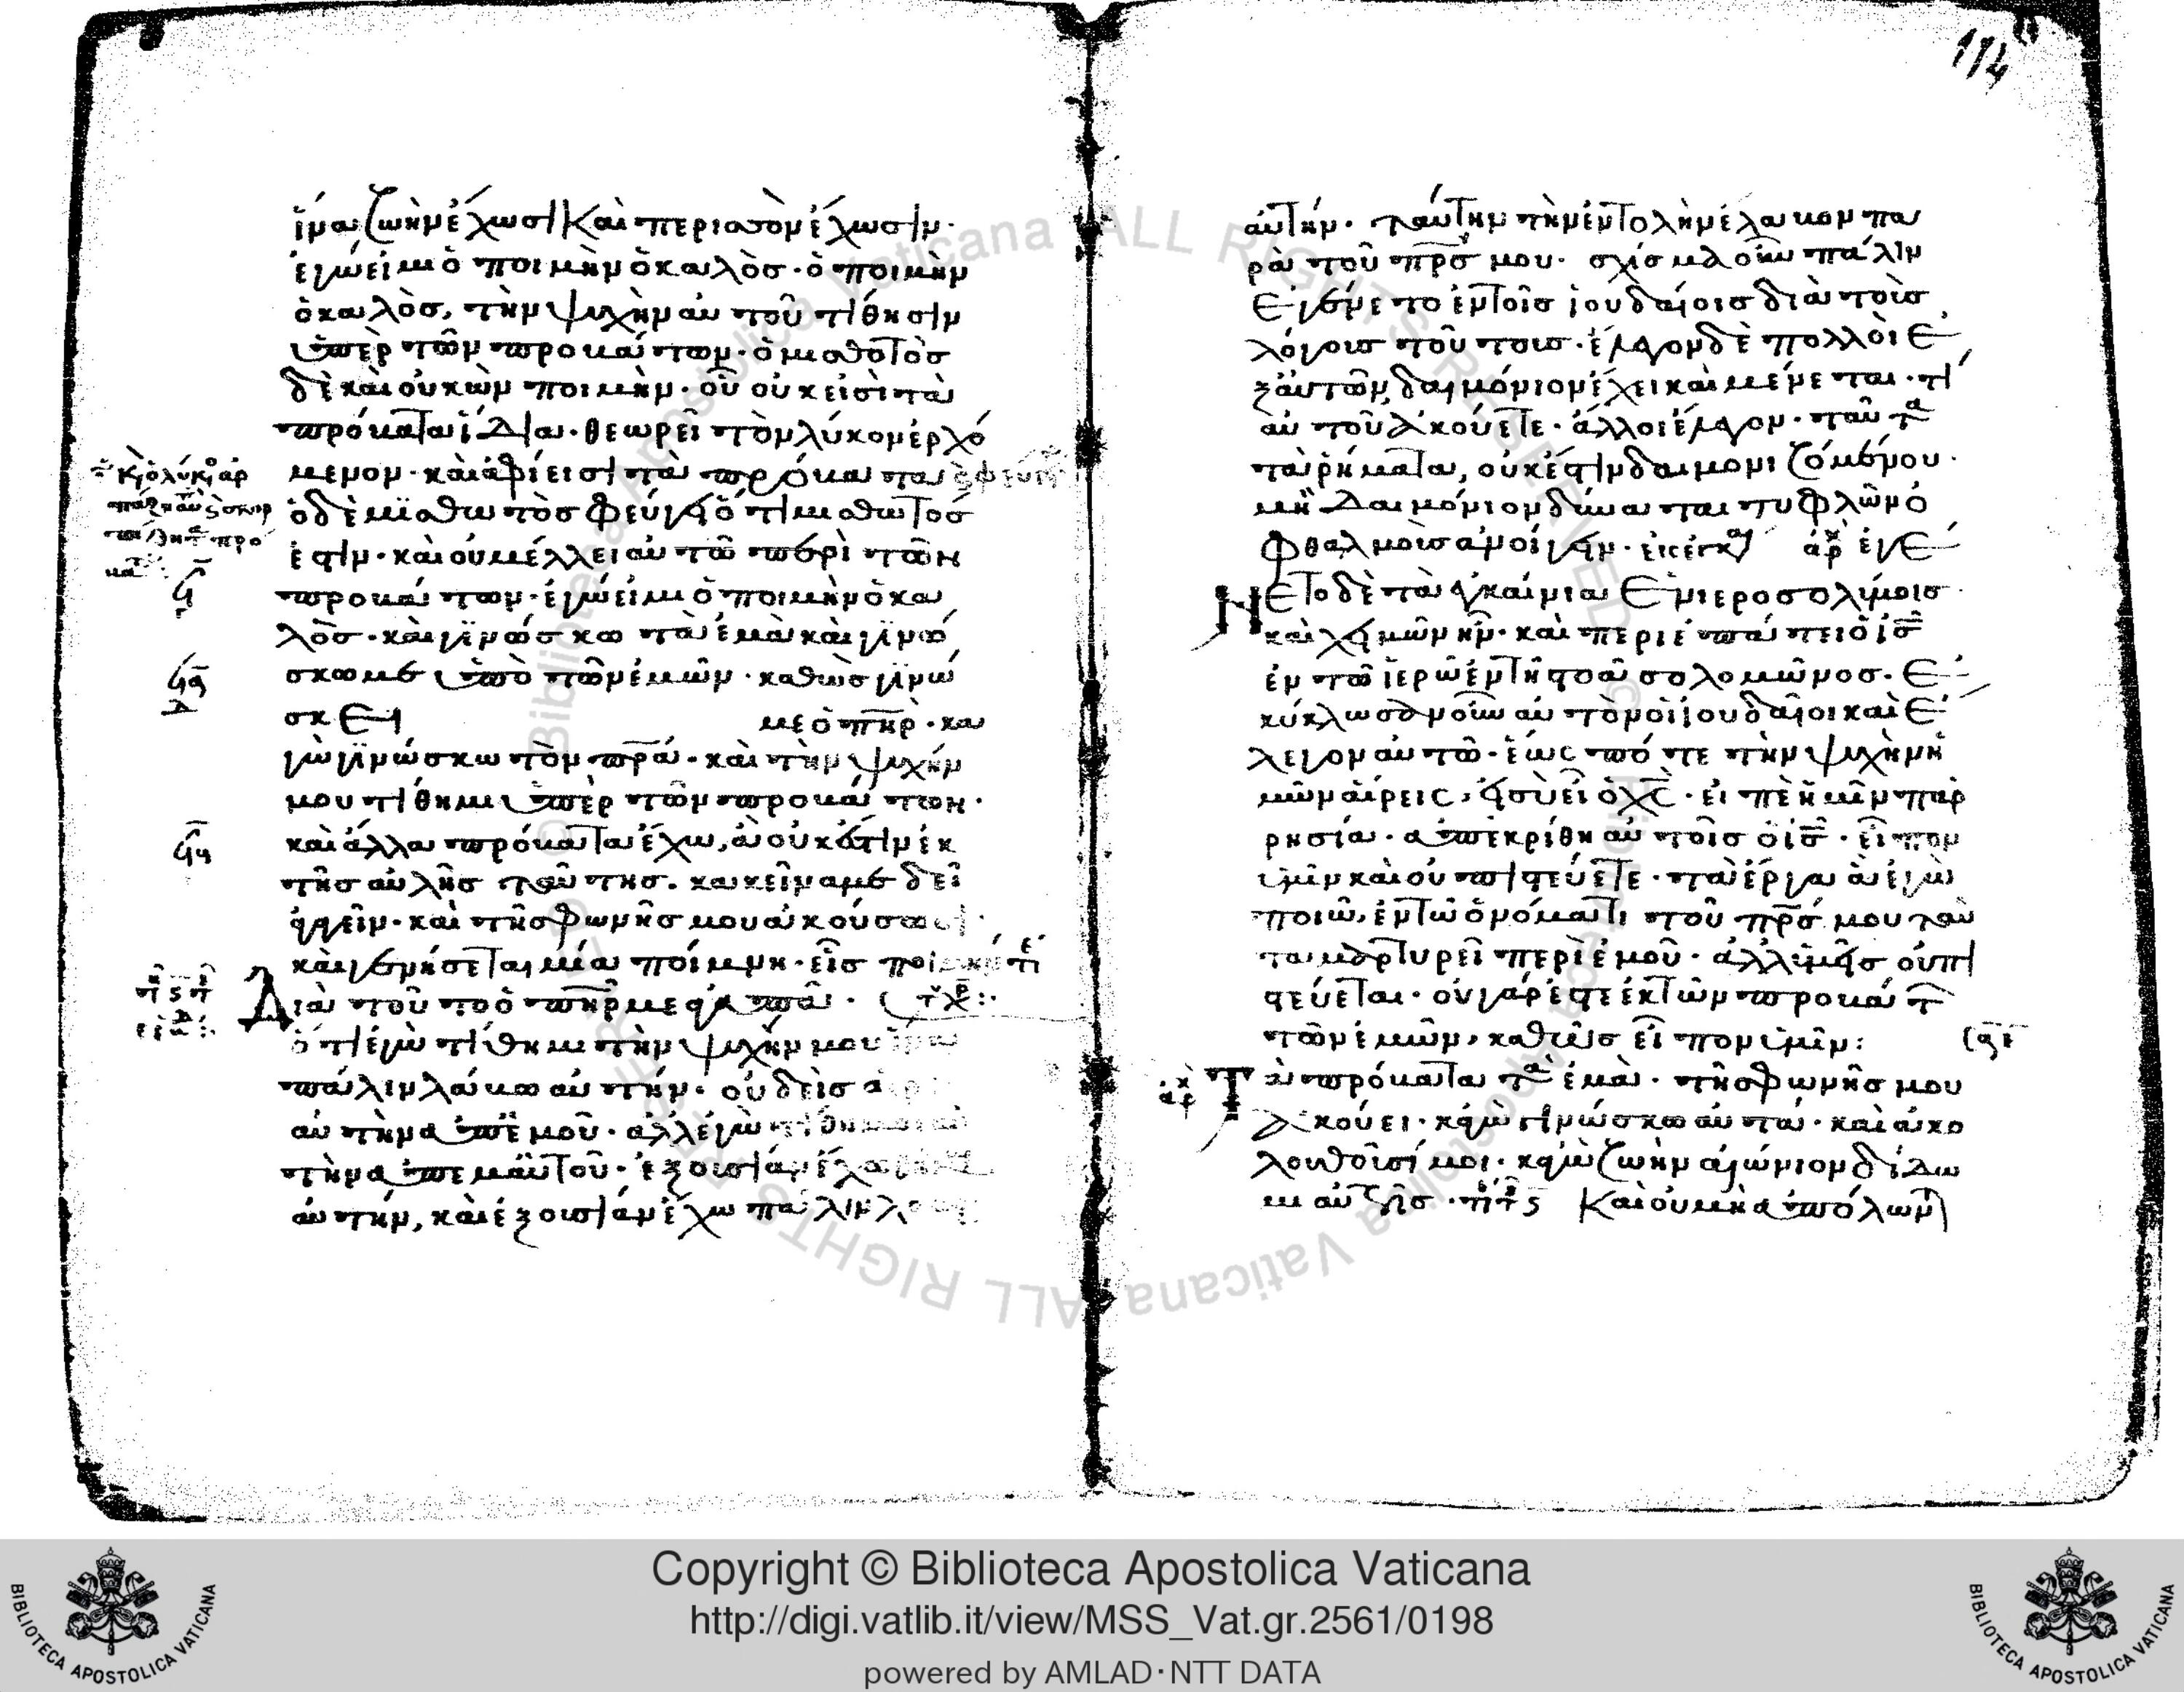 ἵνα ζωὴν ἔχωσι καὶ περισσὸν ἔχωσιν·
ἐγώ εἰμι ὁ ποιμὴν ὁ καλὸσ· ὁ ποιμὴν
ὁ καλὸσ, τὴν ψυχὴν αὐτοῦ τίθησιν
ὑπὲρ τῶν προβάτων· ὁ μισθωτὸσ
δὲ καὶ οὐκ ὢν ποιμὴν· οὗ οὐκ εἰσὶ τὰ
πρόβατα ἴδια· θεωρεῖ τὸν λύκον ἐρχό
μενον· καὶ ἀφίεισι τὰ πρόβατα
ὁ δὲ μισθωτὸσ φεύγει ὅτι μισθωτόσ
ἐστιν· καὶ οὐ μέλλει αὐτῶ περὶ τῶν
προβάτων· ἐγώ εἰμι ὁ ποιμὴν ὁ κα
λὸσ· καὶ γινώσκω τὰ ἐμὰ καὶ γινώ
σκομαι ὑπὸ τῶν ἐμῶν· καθὼσ γινώ
σκει με ὁ πηρ· κα
γὼ γινώσκω τὸν πρα· καὶ τὴν ψυχήν
μου τίθημι ὑπὲρ τῶν προβάτων·
καὶ ἄλλα πρόβατα ἔχω, ἃ οὐκ ἔστιν ἐκ
τῆσ αὐλῆσ ταύτησ· κἀκεῖνα με δεῖ
ἀγαγεῖν· καὶ τῆσ φωνῆσ μου ἀκούσωσι·
καὶ γενήσεται μία ποίμνη· εἷσ ποιμήν
Διὰ τοῦτο ὁ πηρ με ἀγαπᾶ·
ὅτι ἐγὼ τίθημι τὴν ψυχήν μου ἵνα
πάλιν λάβω αὐτήν· οὐδεὶσ αἴρει
αὐτὴν ἀπ ἐμοῦ· ἀλλ ἐγὼ τίθημι αὐ
τὴν ἀπ ἐμαυτοῦ· ἐξουσίαν ἔχω θεῖναι
αὐτήν, καὶ ἐξουσίαν ἔχω πάλιν λαβεῖν
αὐτήν· ταύτην τὴν ἐντολὴν ἔλαβον πα
ρὰ τοῦ πρσ μου· σχίσμα οὖν πάλιν
ἐγένετο ἐν τοῖσ ἰουδαίοισ διὰ τοὺσ
λόγουσ τούτουσ· ἔλεγον δὲ πολλοὶ ἐ
ξ αὐτῶν, δαιμόνιον ἔχει καὶ μαίνεται· τί
αὐτοῦ ἀκούετε· ἄλλοι ἔλεγον· ταῦτα
τὰ ῥήματα, οὐκ ἔστιν δαιμονιζομένου·
μὴ δαιμόνιον δύναται τυφλῶν ὀ
φθαλμοὺσ ἀνοίγειν· ἐγέ
νετο δὲ τὰ ἐγκαίνια ἐν ἱεροσολύμοισ·
καὶ χειμὼν ἦν· καὶ περιεπάτει ὁ ισ
ἐν τῶ ἱερῶ ἐν τῆ στοᾶ σολομῶνοσ· ἐ
κύκλωσαν οὖν αὐτὸν οἱ ἰουδαῖοι καὶ ἔ
λεγον αὐτῶ· ἕωσ πότε τὴν ψυχὴν ἡ
μῶν αἴρεισ, εἰ σὺ εἶ ὁ χσ· εἰπὲ ἡμῖν παρ
ρησία· ἀπεκρίθη αὐτοῖσ ὁ ισ· εἶπον
ὑμῖν καὶ οὐ πιστεύετε· τὰ ἔργα ἃ ἐγὼ
ποιῶ, ἐν τῶ ὀνόματι τοῦ πρσ μου ταῦ
τα μαρτυρεῖ περὶ ἐμοῦ· ἀλλ ὑμεῖσ οὐ πι
στεύεται· οὐ γάρ ἐστε ἐκ τῶν προβάτ
τῶν ἐμῶν, καθὼσ εἶπον ὑμῖν:
Τὰ πρόβατα τὰ ἐμὰ· τῆσ φωνῆσ μου
ἀκούει· κἀγὼ γινώσκω αὐτά· καὶ ἀκο
λουθοῦσί μοι· κἀγὼ ζωὴν αἰώνιον δίδω
μι αὐτοῖσ· Καὶ οὐ μὴ ἀπόλων
114
Copyright © Biblioteca Apostolica Vaticana
http://digi.vatlib.it/view/MSS_Vat.gr.2561/0198
powered by AMLAD·NTT DATA
BIBLIOTECA APOSTOLICA VATICANA
BIBLIOTECA APOSTOLICA VATICANA